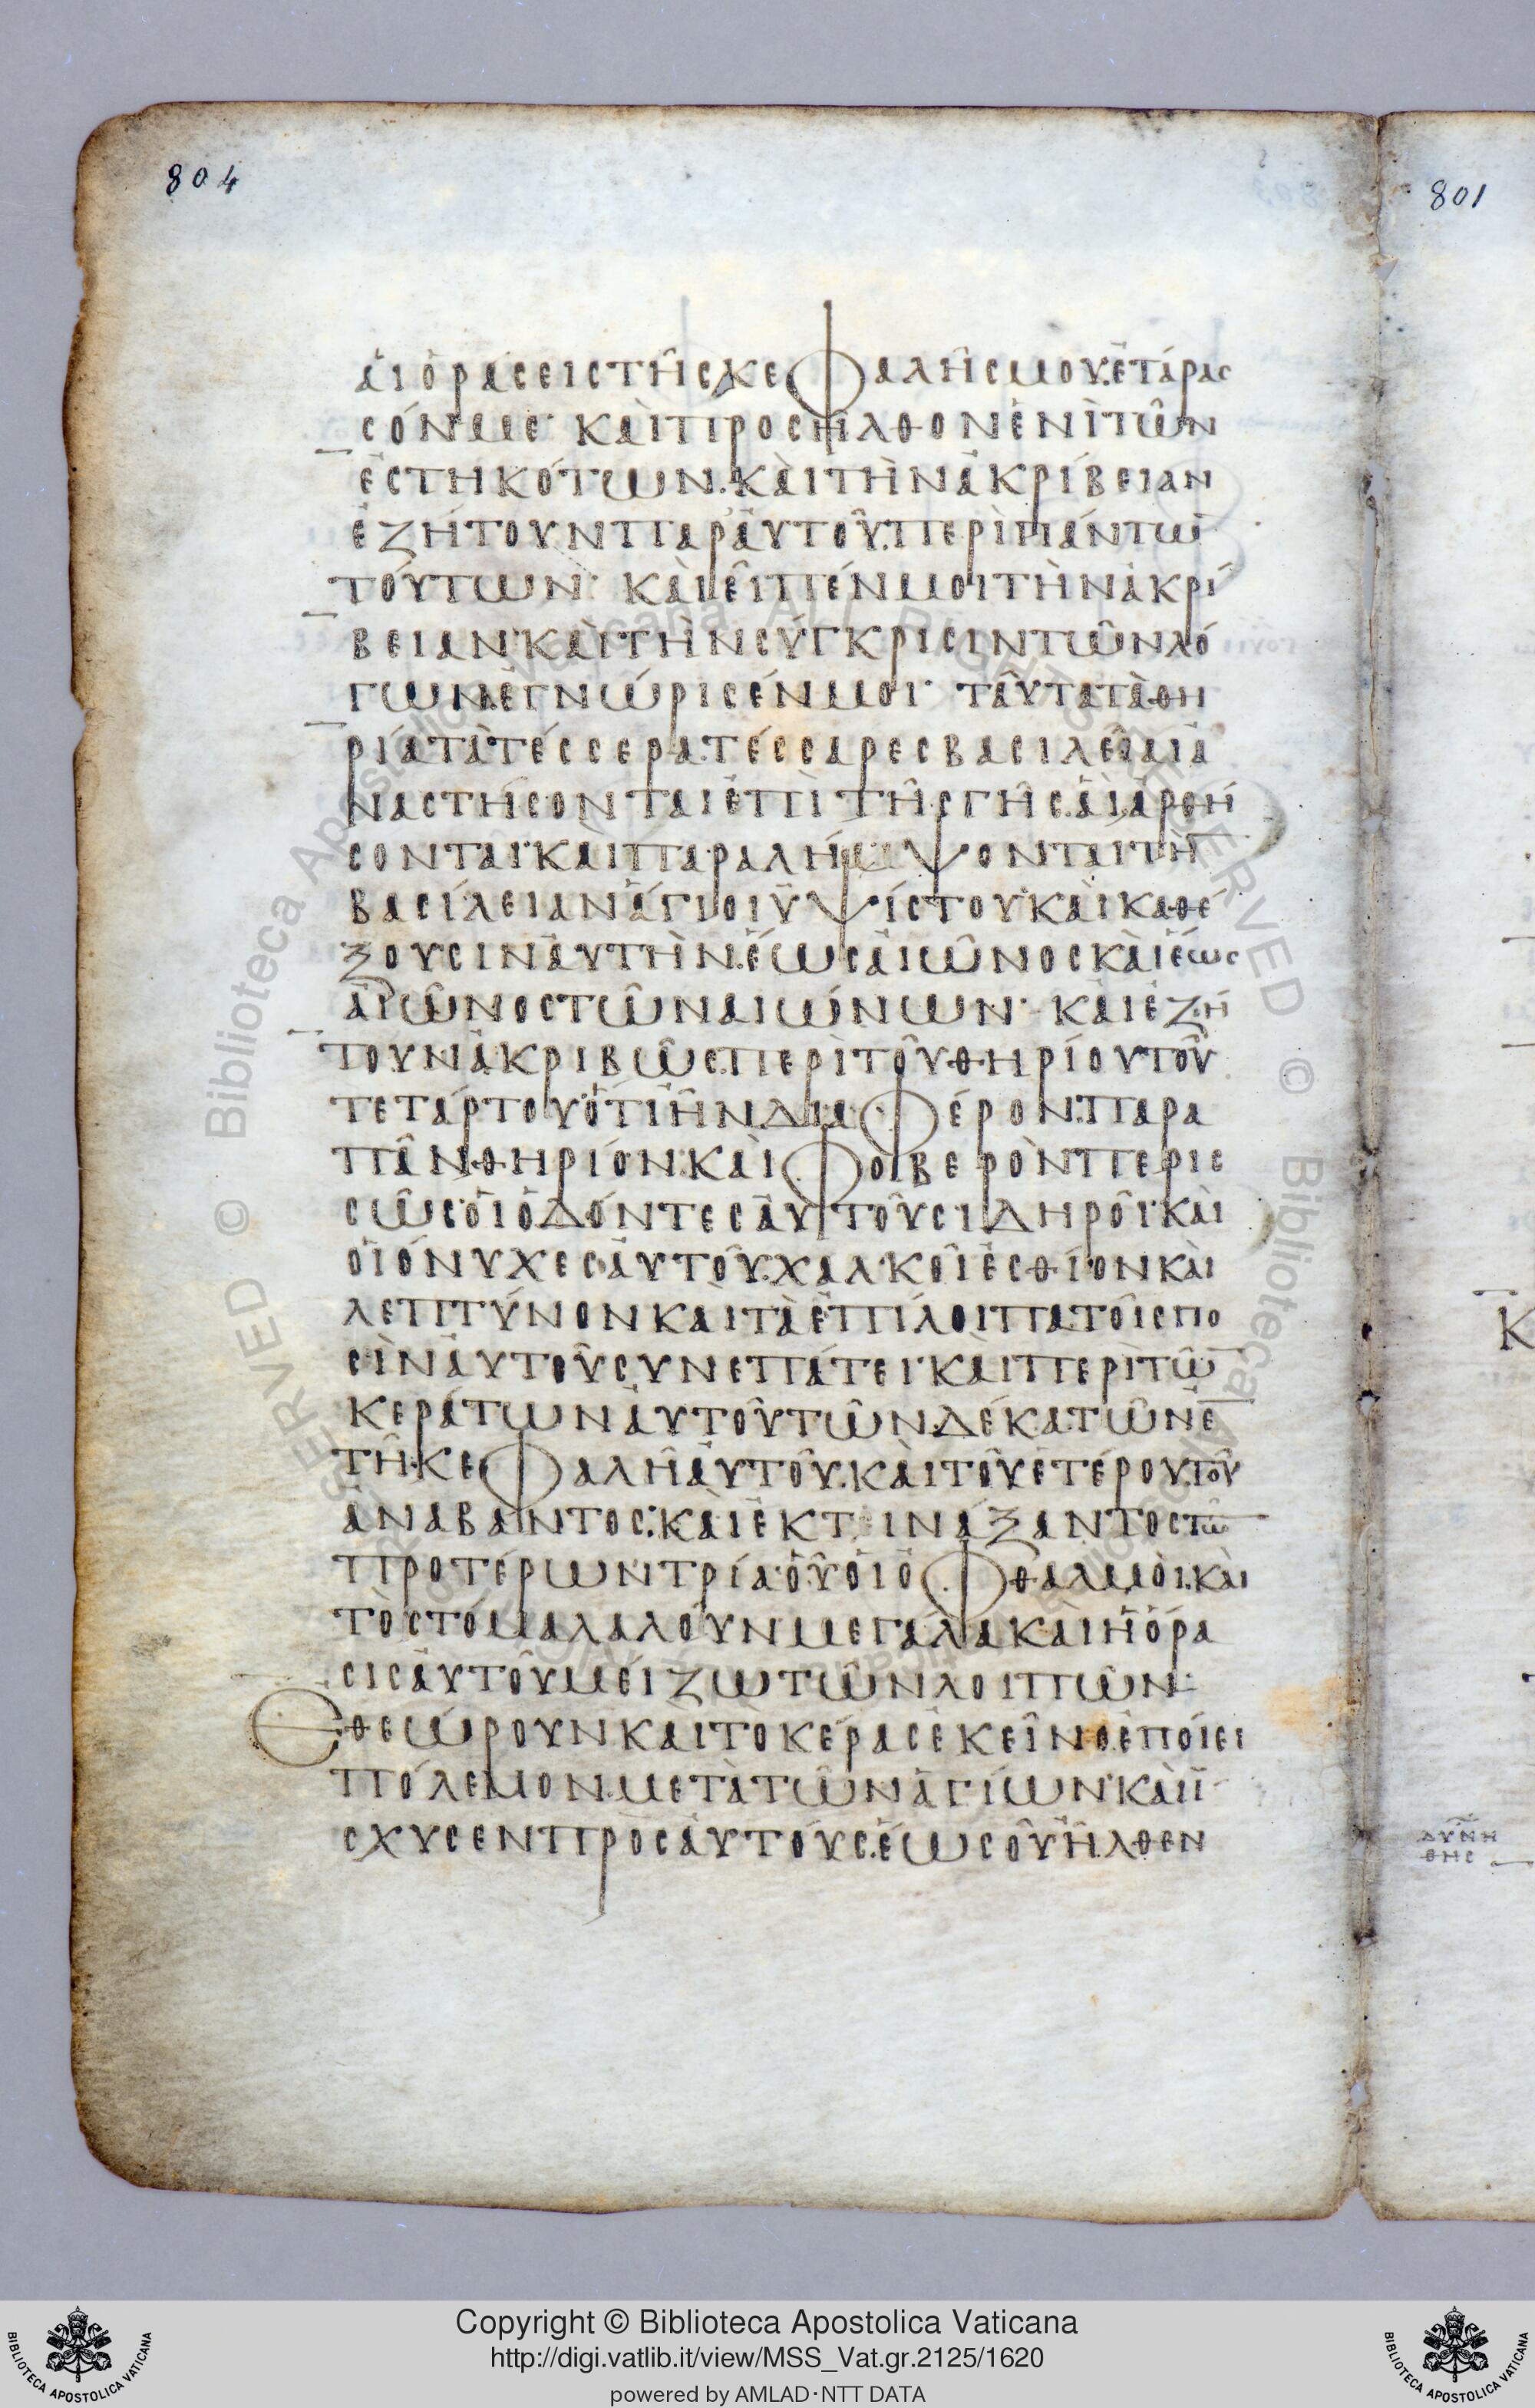 804
801
ἁιὁράσειςτῆςκεφαλῆςμου·ἐτάρας
σόνμε· κὰιπροσῆλθονἑνὶτῶν
ἑστηκότων·κὰιτὴνἀκρίβειαν
ἐζήτουνπαρἀυτοῦ·περὶπάντω̄
τούτων· κὰιεἶπένμοιτὴνἀκρί
βειαν·κὰιτὴνσύγκρισιντῶνλό
γωνἐγνώρισένμοι· ταῦτατὰθη
ρίατὰτέσσερα·τέσσαρεςβασιλεῖαιἀ
ναστήσονταιἐπὶτῆςγῆς·ἁὶἀρθή
σονται·κὰιπαραλήμψονταιτὴ̄
βασίλειανἅγιοιὑψίστου·κὰικαθέ
ξουσινἀυτὴν·ἕωςἀιῶνοςκὰιἕως
ἀιῶνοςτῶναιώνων· κὰιἐζή
τουνἀκριβῶς·περὶτοῦθηρίουτοῦ
τετάρτου·ὅτιἦνδιαφέρον·παρα
πᾶνθηρίον·κὰιφοβερὸνπερισ
σῶς·ὁιὀδόντεςἀυτοῦσιδηροῖ·κὰι
ὁιόνυχεςἀυτοῦ·χαλκοῖ·ἐσθίονκὰι
λεπτύνονκὰιτὰἐπίλοιπατοῖςπο
σὶνἀυτοῦσυνεπάτει·κὰιπερὶτῶ̄
κεράτωνἀυτοῦτῶνδέκατῶνἐ̄
τῆκεφαλῆἀυτοῦ·κὰιτοῦἑτέρου·τοῦ
ἀναβάντος·κὰιἐκτινάξαντοςτῶ̄
προτέρωντρία·ὁῦὁιὀφθαλμὸι·κὰι
τὸστόμαλαλοῦνμεγάλακὰιἡὅρα
σιςἀυτοῦμείζωτῶνλοιπῶν:
Ἐθεώρουνκὰιτὸκέραςἐκεῖνοἐποίει
πόλεμονμετὰτῶνἁγίων·κὰιἴ
σχυσενπρὸςἀυτούς·ἕωςοῦἦλθεν
Κ
ΔΥΝΗ
ΘΗΣ
Copyright © Biblioteca Apostolica Vaticana
http://digi.vatlib.it/view/MSS_Vat.gr.2125/1620
powered by AMLAD·NTT DATA
BIBLIOTECA APOSTOLICA VATICANA
BIBLIOTECA APOSTOLICA VATICANA